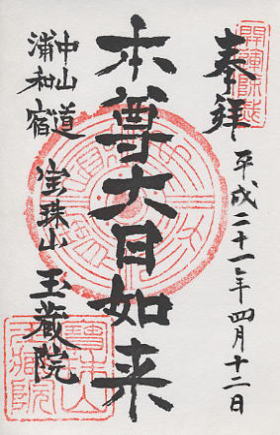 奉拝
平成二十一年四月十二日
本尊大日如来
中山道
浦和宿
宝珠山
玉蔵院